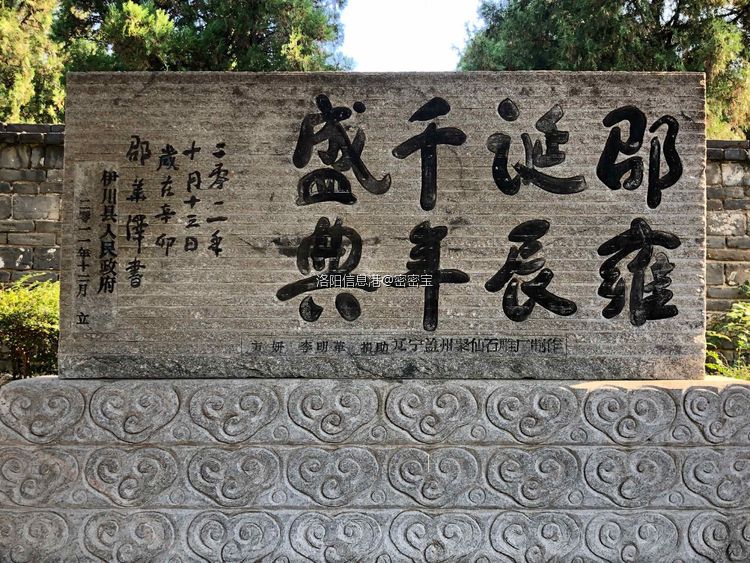 邵雍
诞辰
千年
盛典
二零一一年
十月十三日
岁在辛卯
邵华泽书
伊川县人民政府
二零一一年十二月 立
方妍 李明革 捐助 辽宁盖州聚仙石雕厂制作
洛阳信息港@密密宝